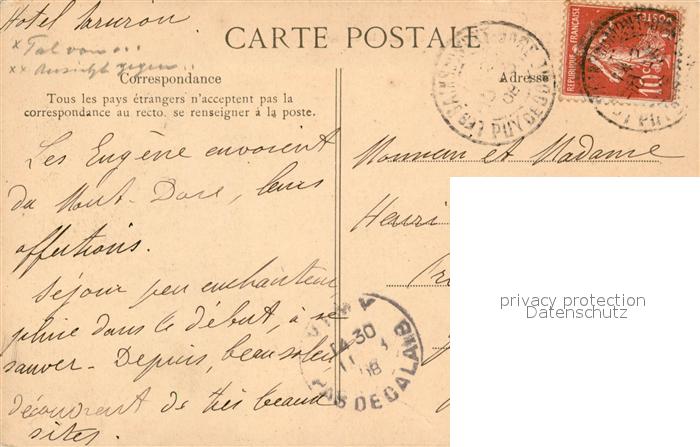 Hotel
CARTE POSTALE
Correspondance
Adresse
Tous les pays étrangers n'acceptent pas la
correspondance au recto, se renseigner à la poste.
RÉPUBLIQUE FRANÇAISE
POSTES
10
PUY DE DOME
Les Eugène envoient
du Mont-Dore, leurs
affections.
Séjour peu enchanteur
pluie dans le début, à se
sauver - Depuis, beau soleil
découvrent de très beaux
sites.
Monsieur et Madame
Henri
14 30
11
08
PAS DE CALAIS
privacy protection
Datenschutz